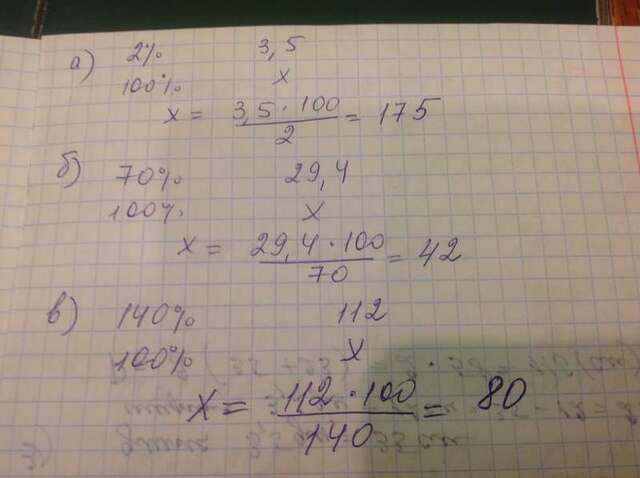 а) 2% 3,5
100% x
x = 3,5 · 100 / 2 = 175
б) 70% 29,4
100% x
x = 29,4 · 100 / 70 = 42
в) 140% 112
100% x
x = 112 · 100 / 140 = 80